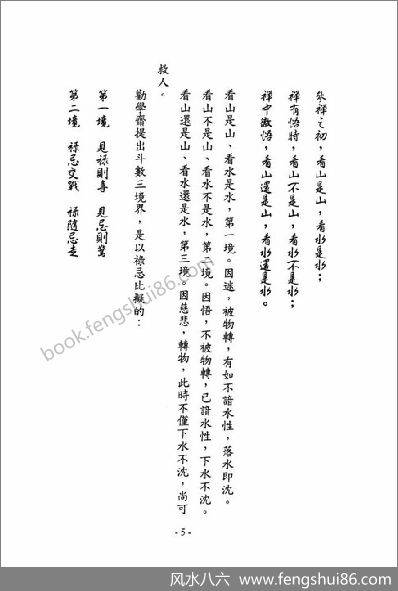 參禪之初，看山是山，看水是水；
禪有悟時，看山不是山，看水不是水；
禪中徹悟，看山還是山，看水還是水。
看山是山、看水是水，第一境。因迷，被物轉，有如不諳水性，落水即沈。
看山不是山、看水不是水，第二境。因悟，不被物轉，已諳水性，下水不沈。
看山還是山、看水還是水，第三境。因慈悲，轉物，此時不僅下水不沈，尚可
救人。
勸學齋提出斗數三境界，是以祿忌比擬的：
第一境 見祿則喜 見忌則驚
第二境 祿忌交戰 祿隨忌走
- 5 -
book.fengshui86.com
风水八六 - www.fengshui86.com